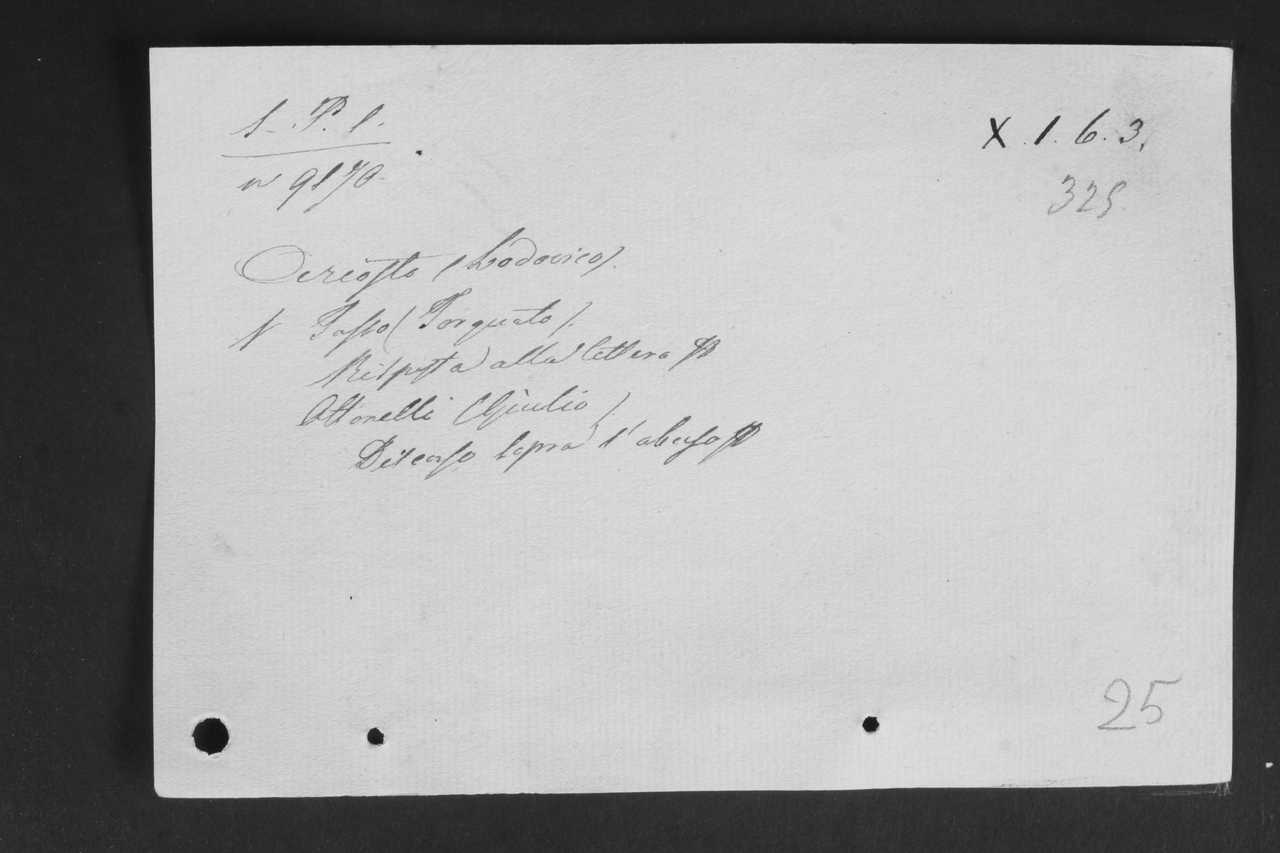 S. P. l.
X. 1. 6. 3.
n 9170.
325
Areosto (Lodovico).
Tasso (Torquato).
Risposta alla lettera
Ottonelli (Giulio)
Discorso sopra l'abuso
25